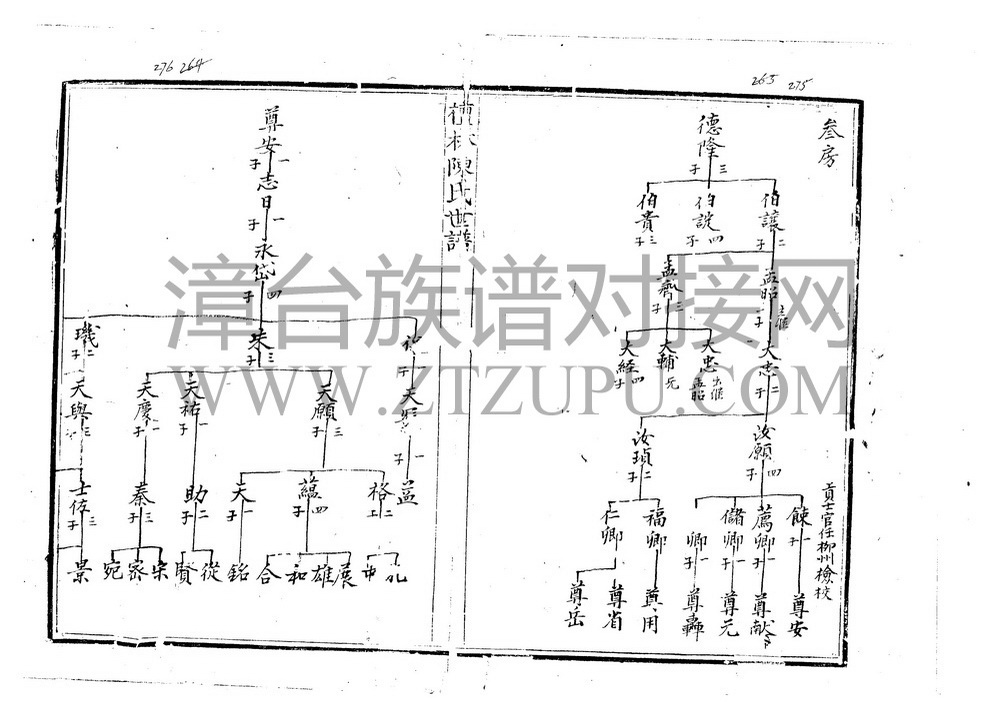 276 264
265 275
叁房
德隆
三子
伯讓 二子
伯說 四子
伯貴 三子
孟昭
孟齊 三子
大忠 二子
大忠 出继 孟昭
大輔 无
大経 四子
汝願 四子
汝頊 二子
餗 一子
貢士官任柳州檢校
薦卿 一子
儲卿 一子
卿 一子
福卿
仁卿
尊安
尊猷
尊元
尊轟
尊用
尊省
尊岳
陳氏世譜
尊安
一子
志日
一子
永岱
四子
三子
璣 二子
天願 三子
天祐 一子
天慶 一子
天與 三子
益
格
蘊 四子
天 一子
助 二子
秦 三子
士俊 三子
展
雄
和
合
銘
從
賢
宋
家
宛
景
漳台族谱对接网
WWW.ZTZUPU.COM